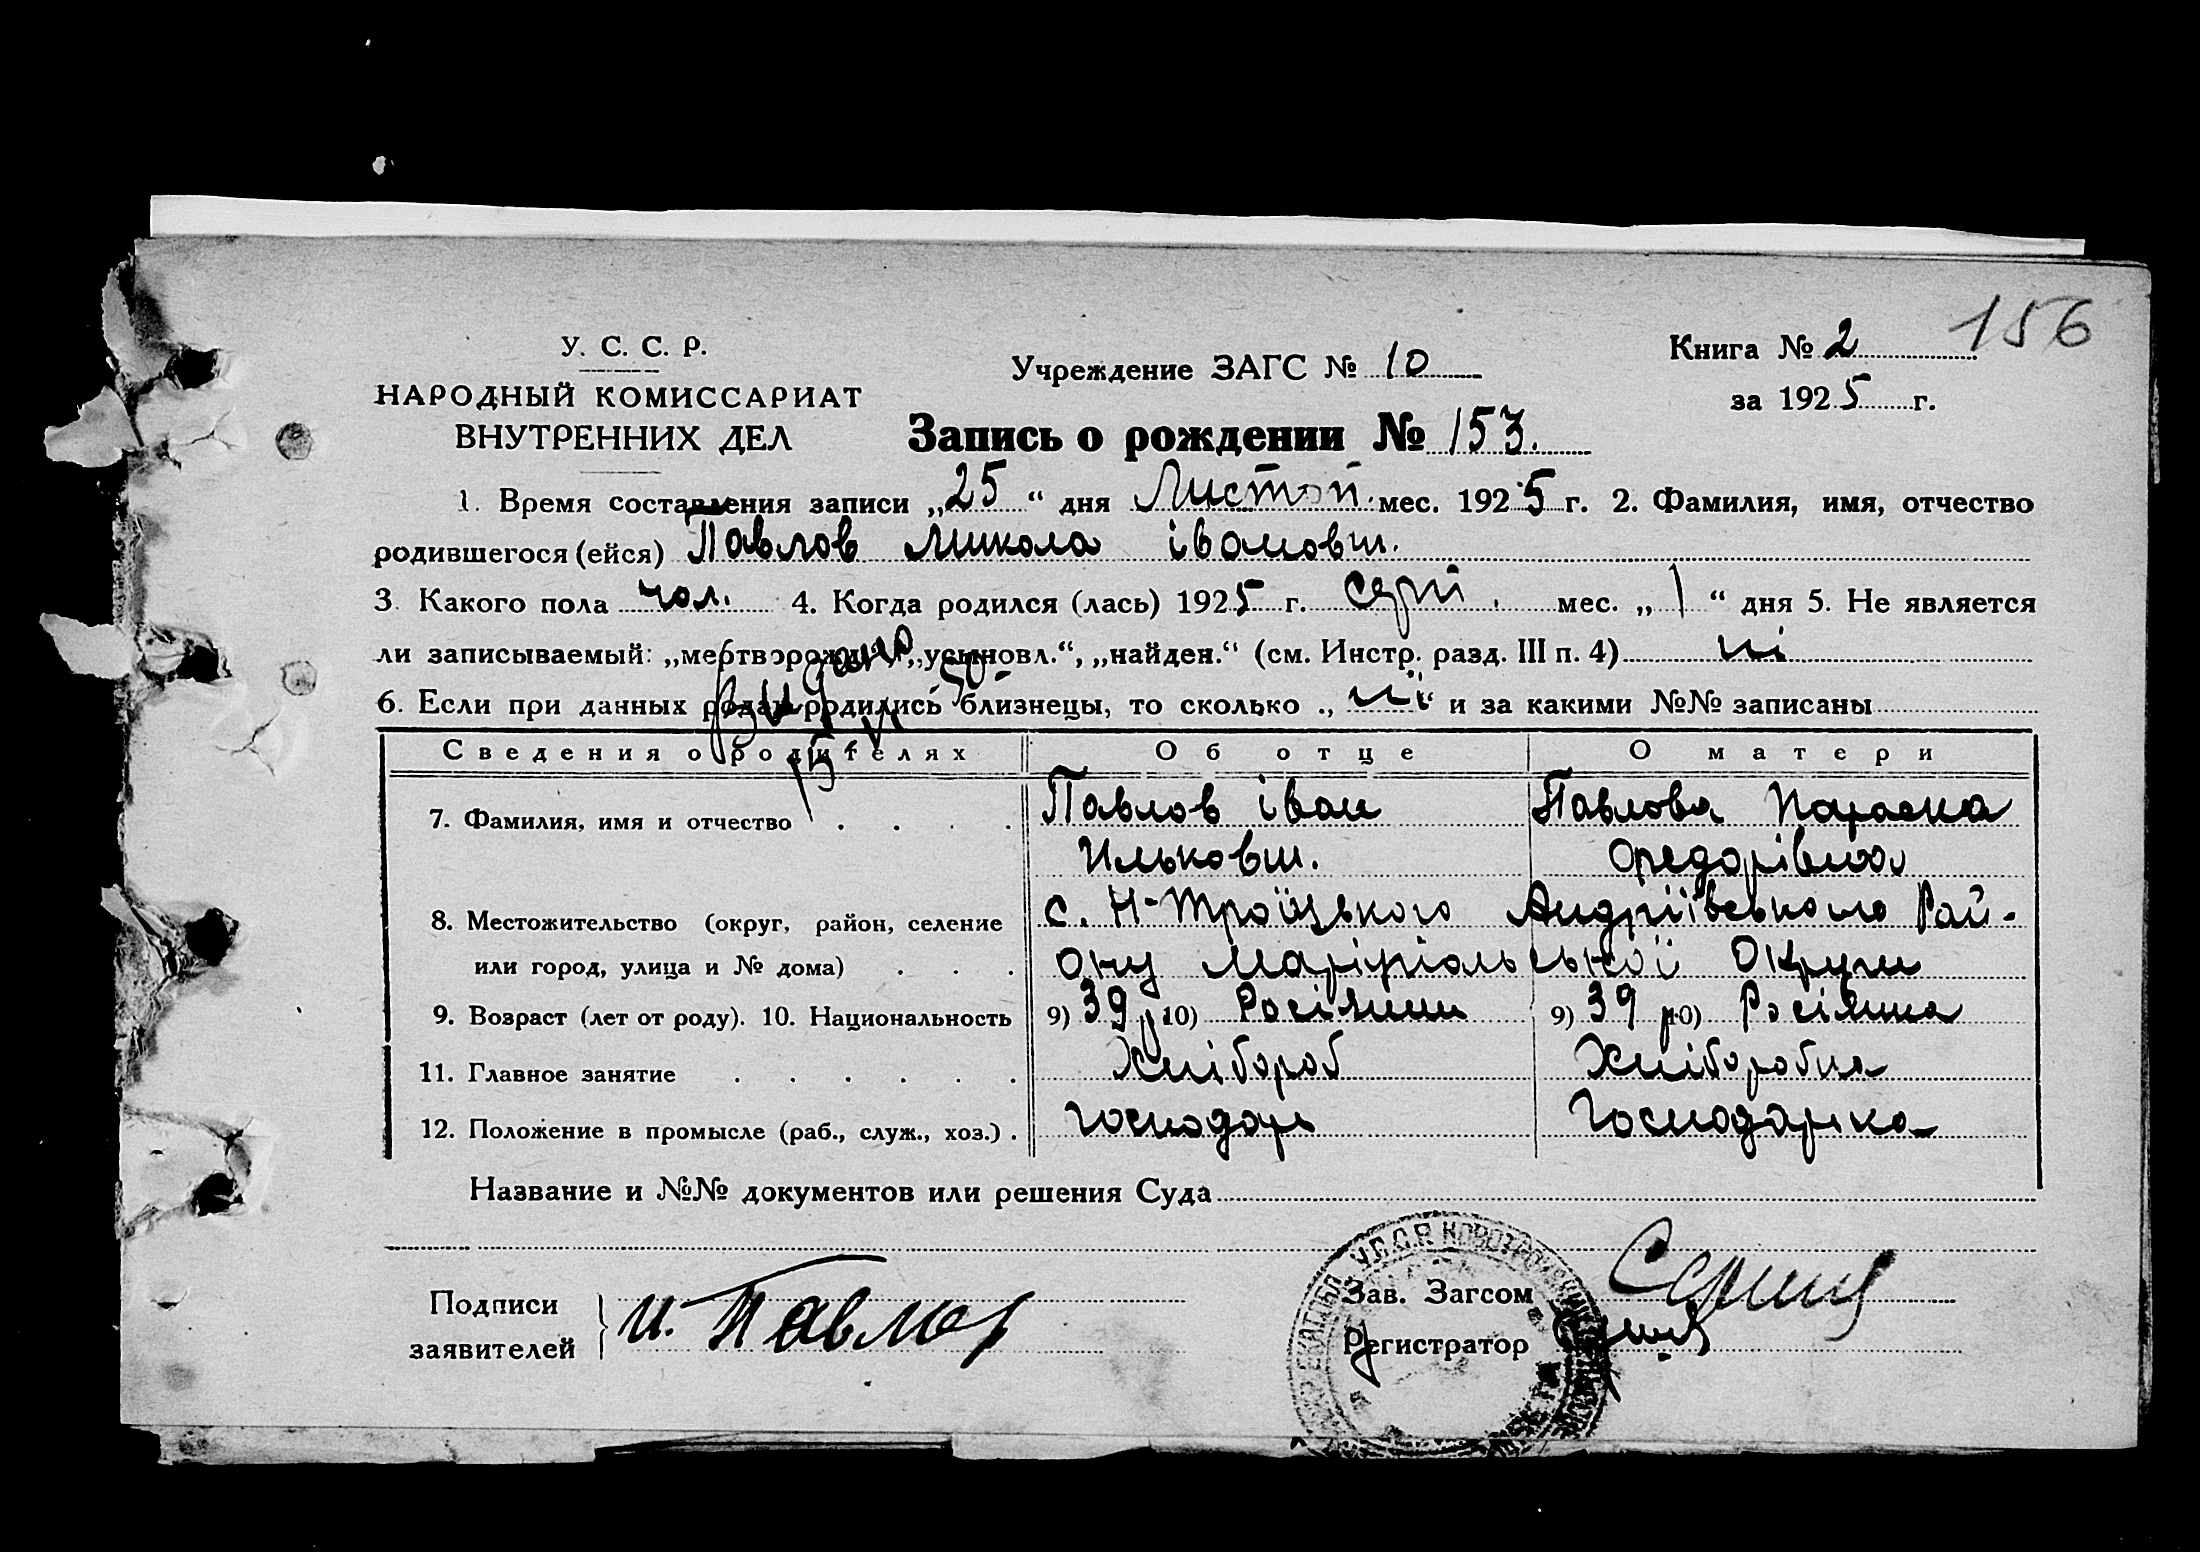 156
У. С. С. Р.
НАРОДНЫЙ КОМИССАРИАТ
ВНУТРЕННИХ ДЕЛ
Учреждение ЗАГС № 10
Книга № 2
за 1925 г.
Запись о рождении № 153.
1. Время составления записи „25“ дня Листоп. мес. 1925 г. 2. Фамилия, имя, отчество
родившегося (ейся) Павлов Микола Іванович.
3. Какого пола чол. 4. Когда родился (лась) 1925 г. серп. мес. „1“ дня 5. Не является
ли записываемый: „мертворожд.“, „усыновл.“, „найден.“ (см. Инстр. разд. III п. 4) ні
6. Если при данных родах родились близнецы, то сколько „ні“ и за какими №№ записаны
Видано
Сведения о родителях Об отце О матери
7. Фамилия, имя и отчество . . . . Павлов Іван Павлова Параска
Ількович. Федорівна
8. Местожительство (округ, район, селение с. Н-Троїцького Андріївського Рай-
или город, улица и № дома) . . . ону Маріюпольської Округи
9. Возраст (лет от роду). 10. Национальность 9) 39 р. 10) Росіянин 9) 39 р. 10) Росіянка
11. Главное занятие . . . . . . Хлібороб Хліборобка
12. Положение в промысле (раб., служ., хоз.) . Господарь Господарька
Название и №№ документов или решения Суда
Подписи
заявителей
И. Павлов
Зав. Загсом
Регистратор
У.С.С.Р.